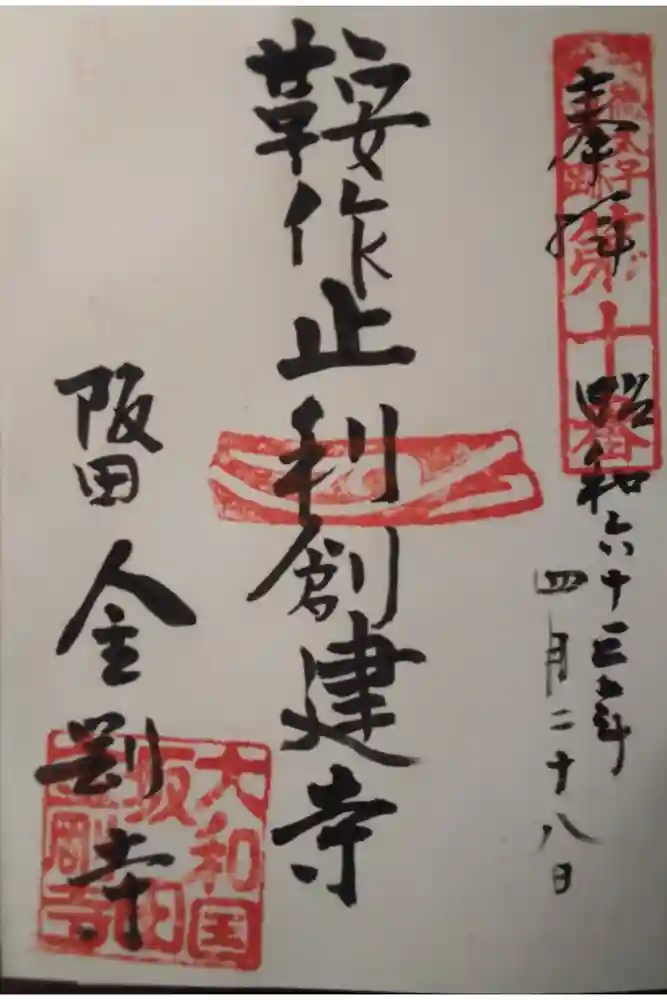 奉拝
昭和六十三年
四月二十八日
徳太子
跡
第十番
鞍作止利創建寺
阪田
金剛寺
大和国
坂田
金剛寺